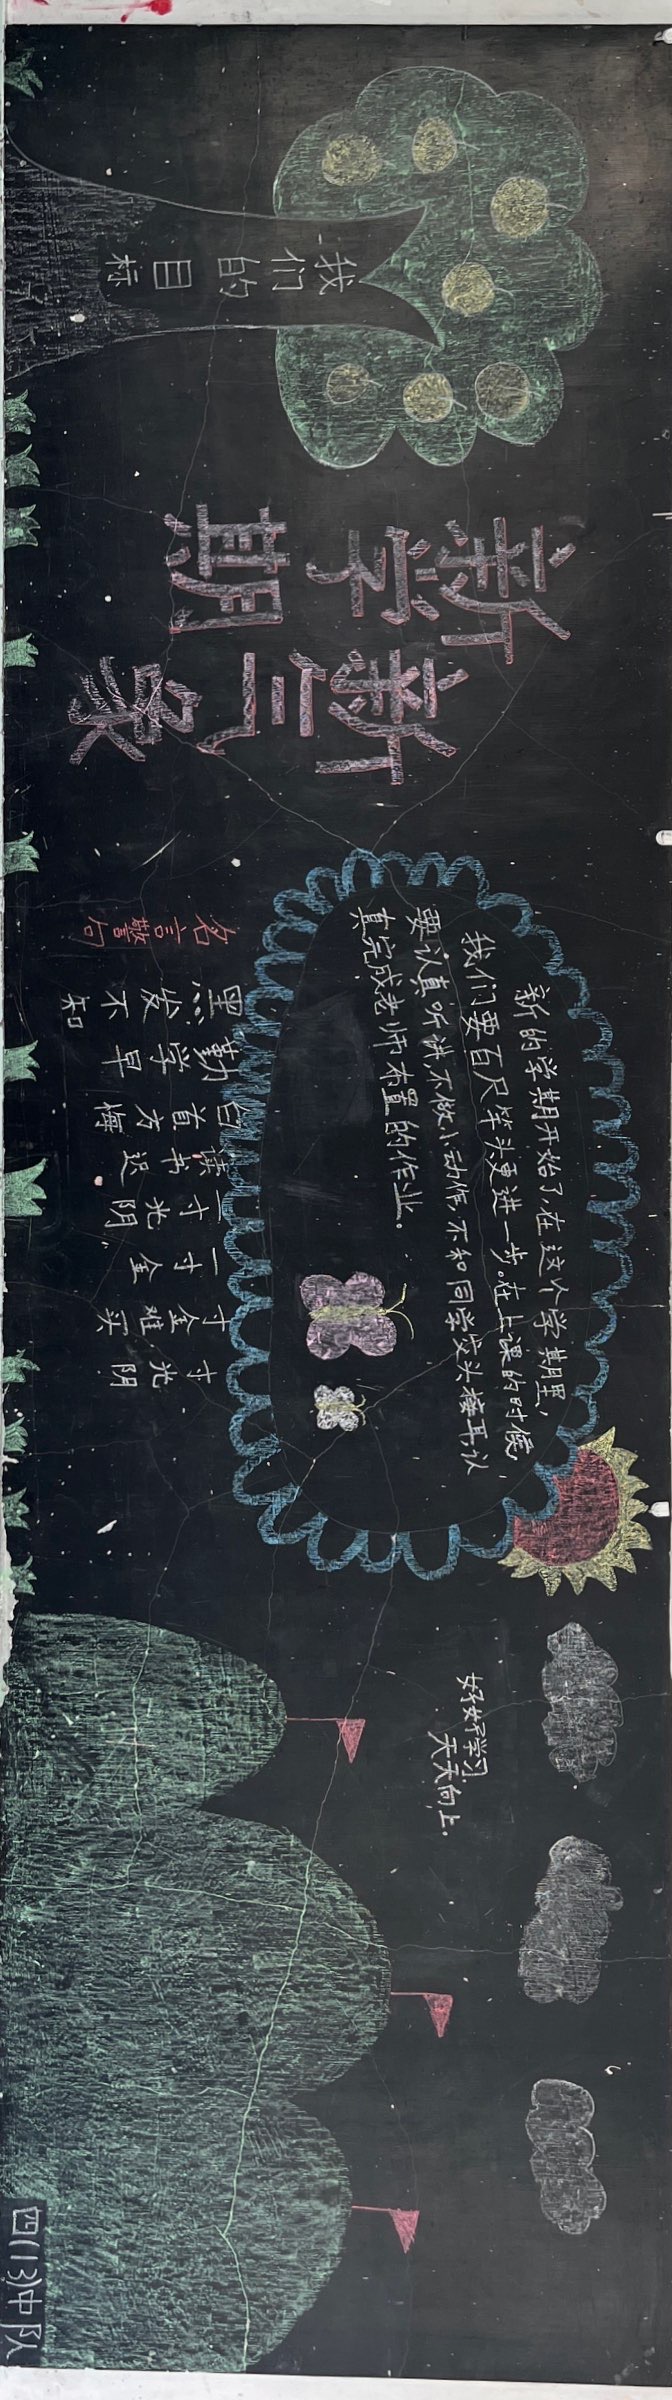 我们的目标
新学期
新气象
新的学期开始了,在这个学期里,
我们要百尺竿头更进一步。在上课的时候,
要认真听讲,不做小动作,不和同学交头接耳,认
真完成老师布置的作业。
名言警句
黑发不知
勤学早
白首方悔
读书迟
一寸光阴
一寸金
寸金难买
寸光阴
好好学习,
天天向上。
四(13)中队